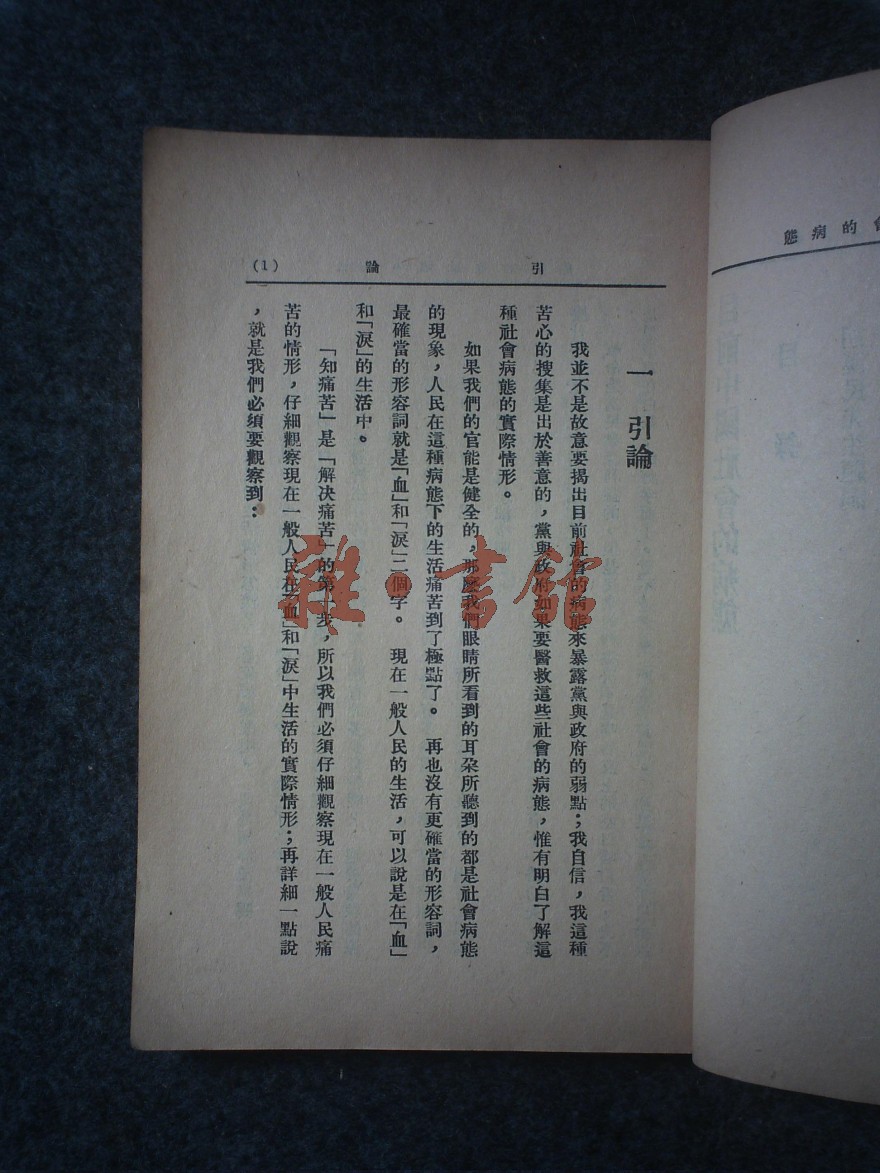 會的病態
引論
(1)
一 引論
我並不是故意要揭出目前社會的病態來暴露黨與政府的弱點；我自信，我這種
苦心的搜集是出於善意的，黨與政府如果要醫救這些社會的病態，惟有明白了解這
種社會病態的實際情形。
如果我們的官能是健全的，那麼我們眼睛所看到的耳朶所聽到的都是社會病態
的現象，人民在這種病態下的生活痛苦到了極點了。再也沒有更確當的形容詞，
最確當的形容詞就是「血」和「淚」二個字。現在一般人民的生活，可以說是在「血」
和「淚」的生活中。
「知痛苦」是「解决痛苦」的第一步，所以我們必須仔細觀察現在一般人民痛
苦的情形，仔細觀察現在一般人民在「血」和「淚」中生活的實際情形；再詳細一點說
，就是我們必須要觀察到：
雜·書館